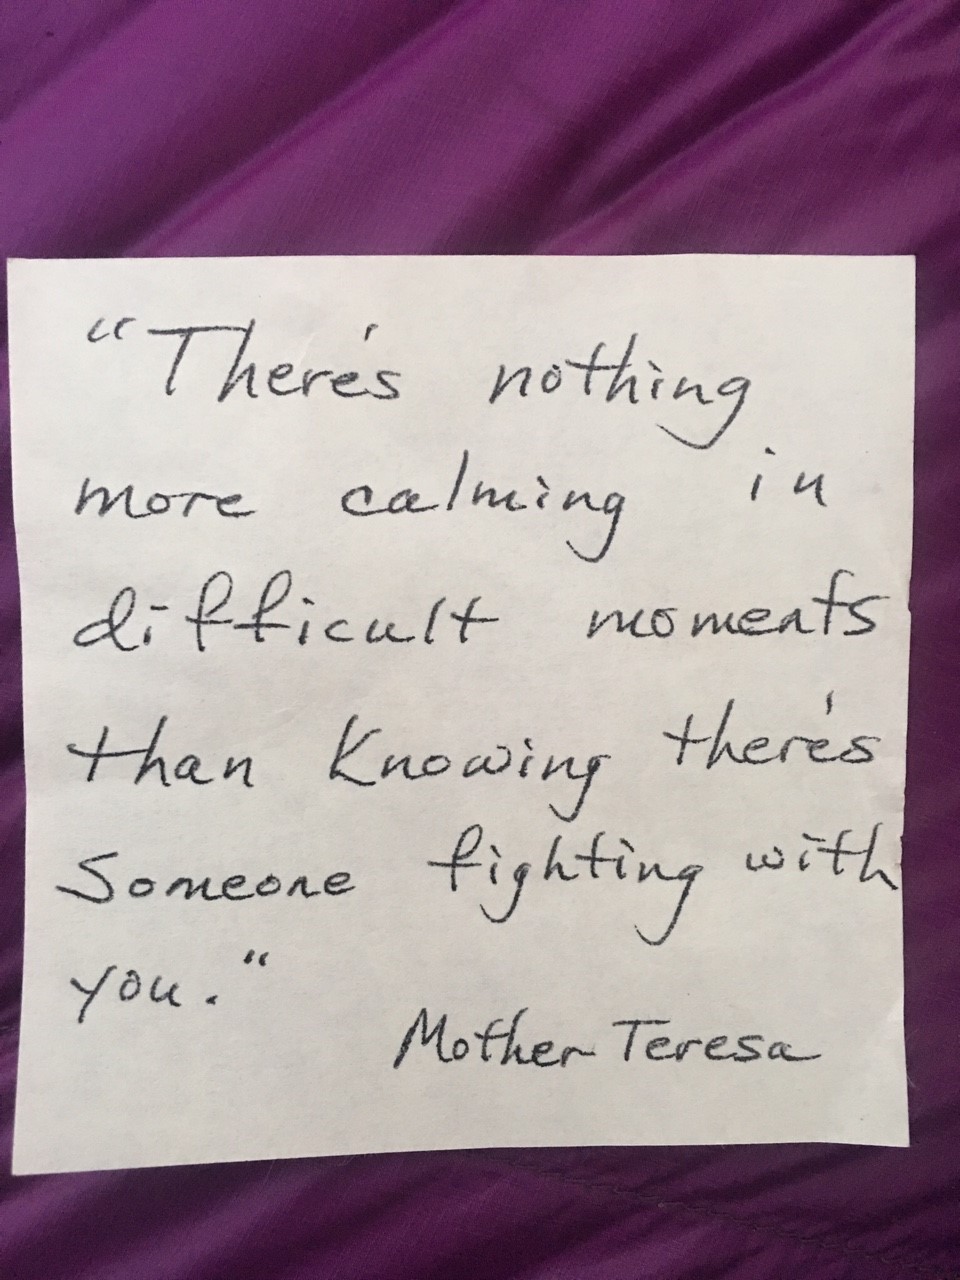 "There's nothing
more calming in
difficult moments
than Knowing there's
Someone fighting with
you."
Mother Teresa